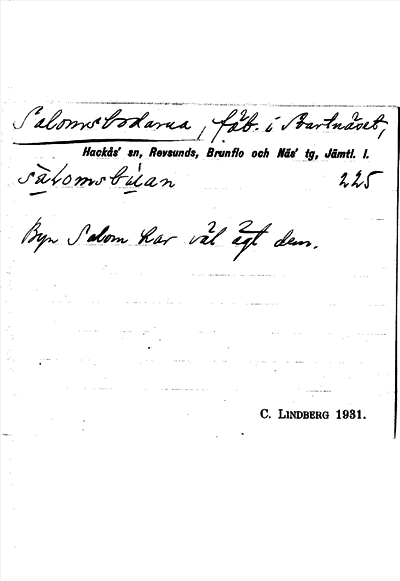 Salomsbodarna, fäb. i Svartnäset,
Hackås' sn, Revsunds, Brunflo och Näs' tg, Jämtl. l.
sàlomsbu̇an 225
Byn Salom har väl ägt dem.
C. LINDBERG 1931.